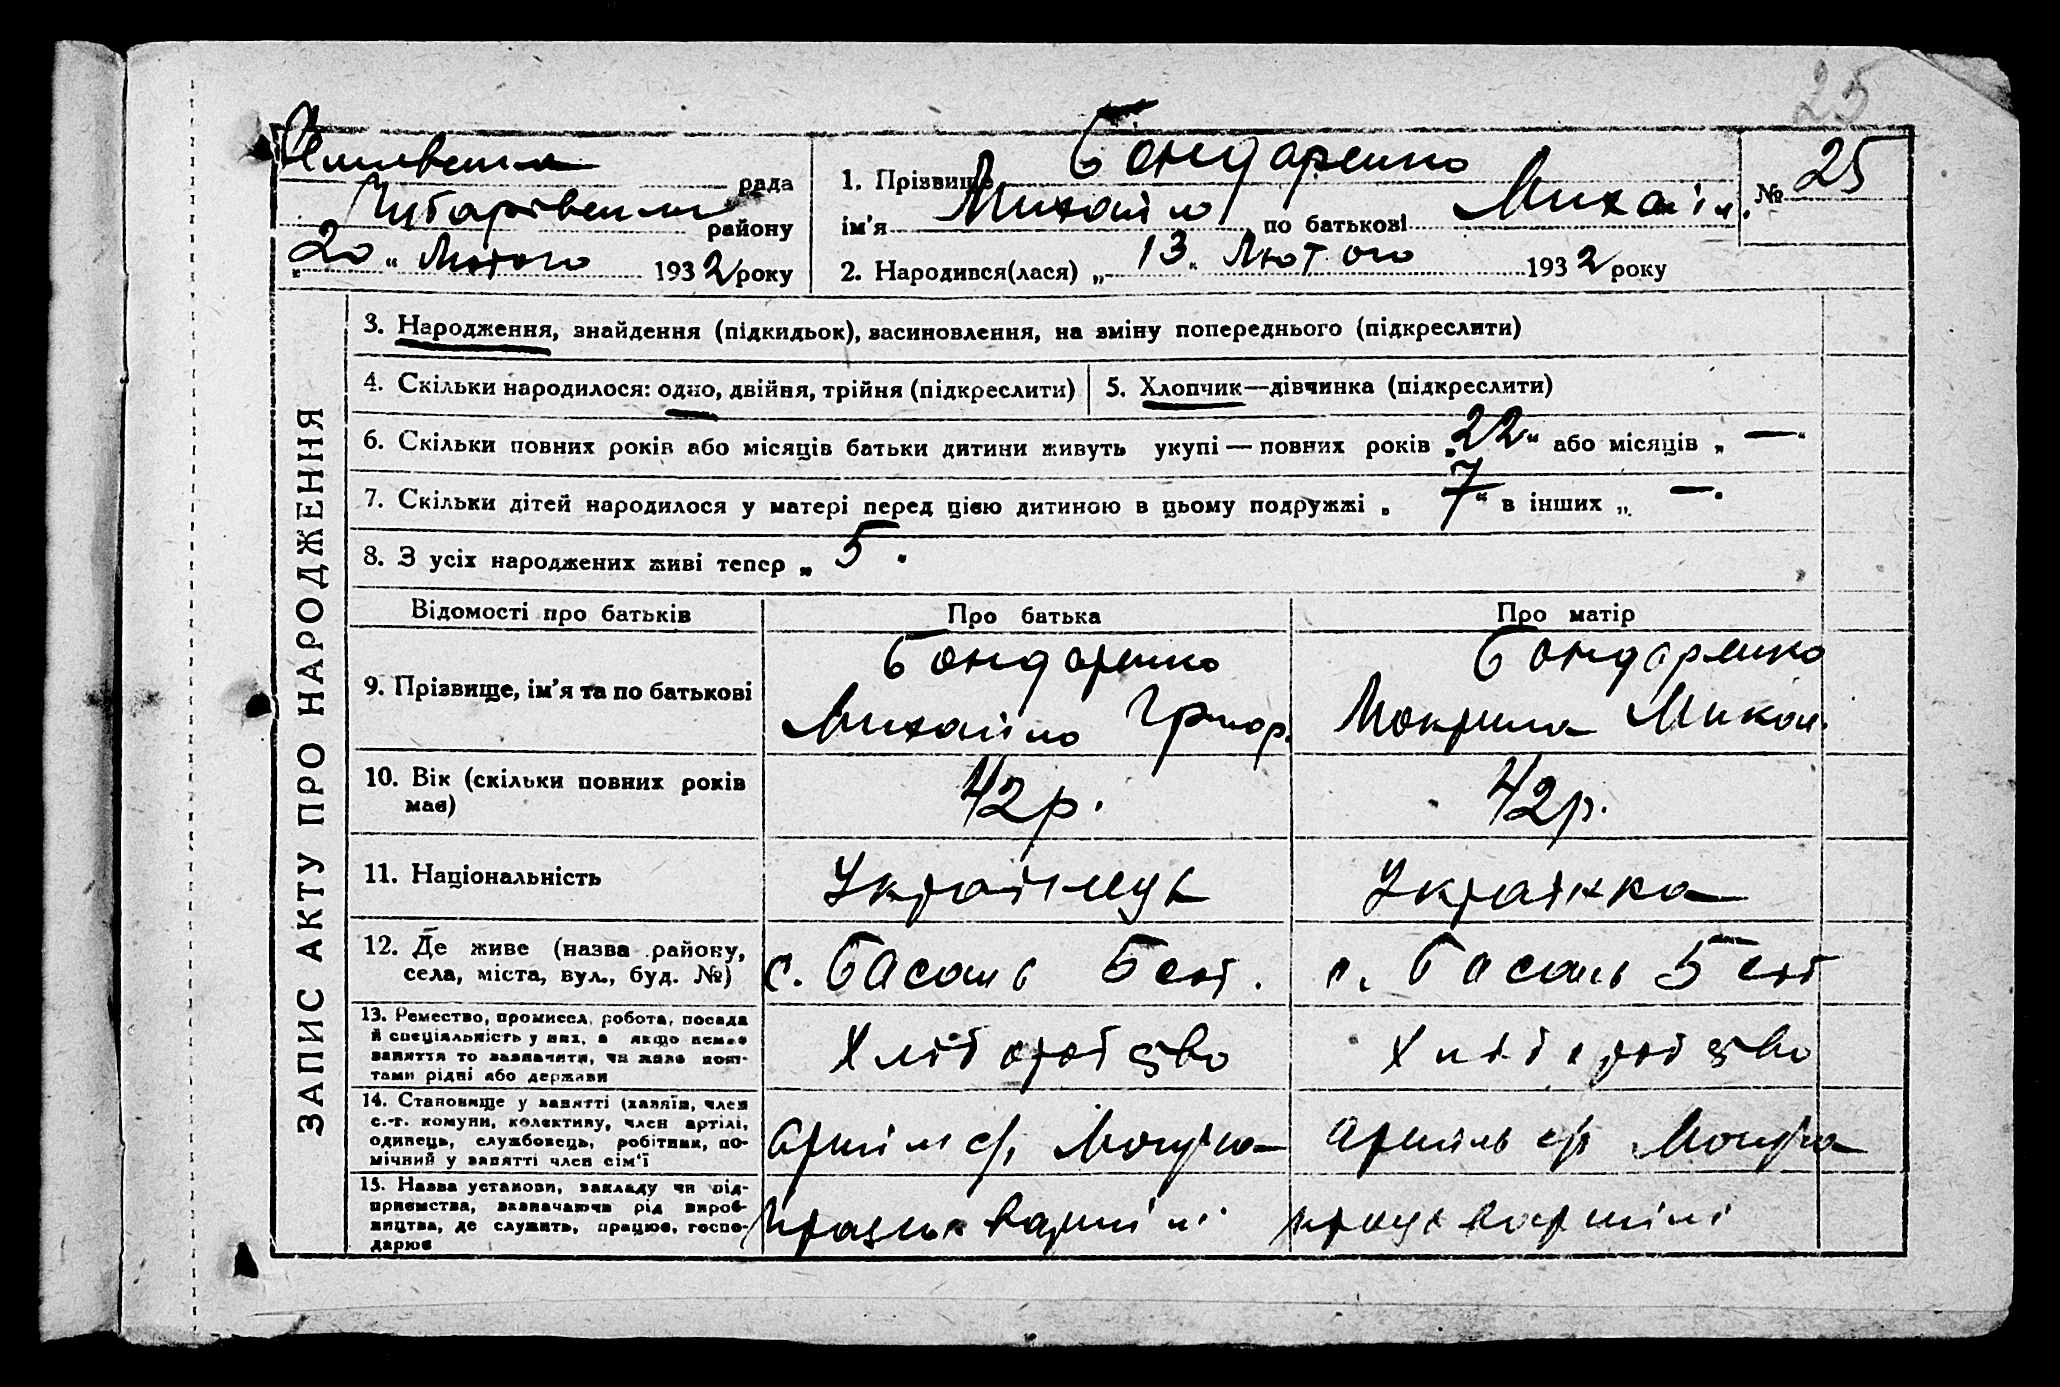 25
рада
Чубарівська району
„20“ Лютого 1932 року
1. Прізвище Бондаренко
ім'я Михайло по батькові Михайл.
№ 25
2. Народився(лася) „13“ Лютого 1932 року
ЗАПИС АКТУ ПРО НАРОДЖЕННЯ
3. Народження, знайдення (підкидьок), васиновлення, на зміну попереднього (підкреслити)
4. Скільки народилося: одно, двійня, трійня (підкреслити)
5. Хлопчик—дівчинка (підкреслити)
6. Скільки повних років або місяців батьки дитини живуть укупі — повних років „22“ або місяців „—“
7. Скільки дітей народилося у матері перед цією дитиною в цьому подружжі „7“ в інших „—.
8. З усіх народжених живі тепер „5.
Відомості про батьків
Про батька
Про матір
9. Прізвище, ім'я та по батькові
Бондаренко
Михайло Григор.
Бондаренко
Мокрина Микол.
10. Вік (скільки повних років
має)
42 р.
42 р.
11. Національність
Українець
Українка
12. Де живе (назва району,
села, міста, вул., буд. №)
с. Басань 5 сот.
с. Басань 5 сот
13. Ремество, промисел, робота, посада
й спеціяльність у них, а якщо немає
заняття то зазначити, чи живе кош-
тами рідні або держави
Хліборобство
Хліборобство
14. Становище у занятті (хазяїн, член
с.-г. комуни, колективу, член артілі,
одинець, службовець, робітник, по-
мічний у занятті член сім'ї
15. Назва установи, закладу чи під-
приємства, зазначаючи рід вироб-
ництва, де служить, працює, госпо-
дарює